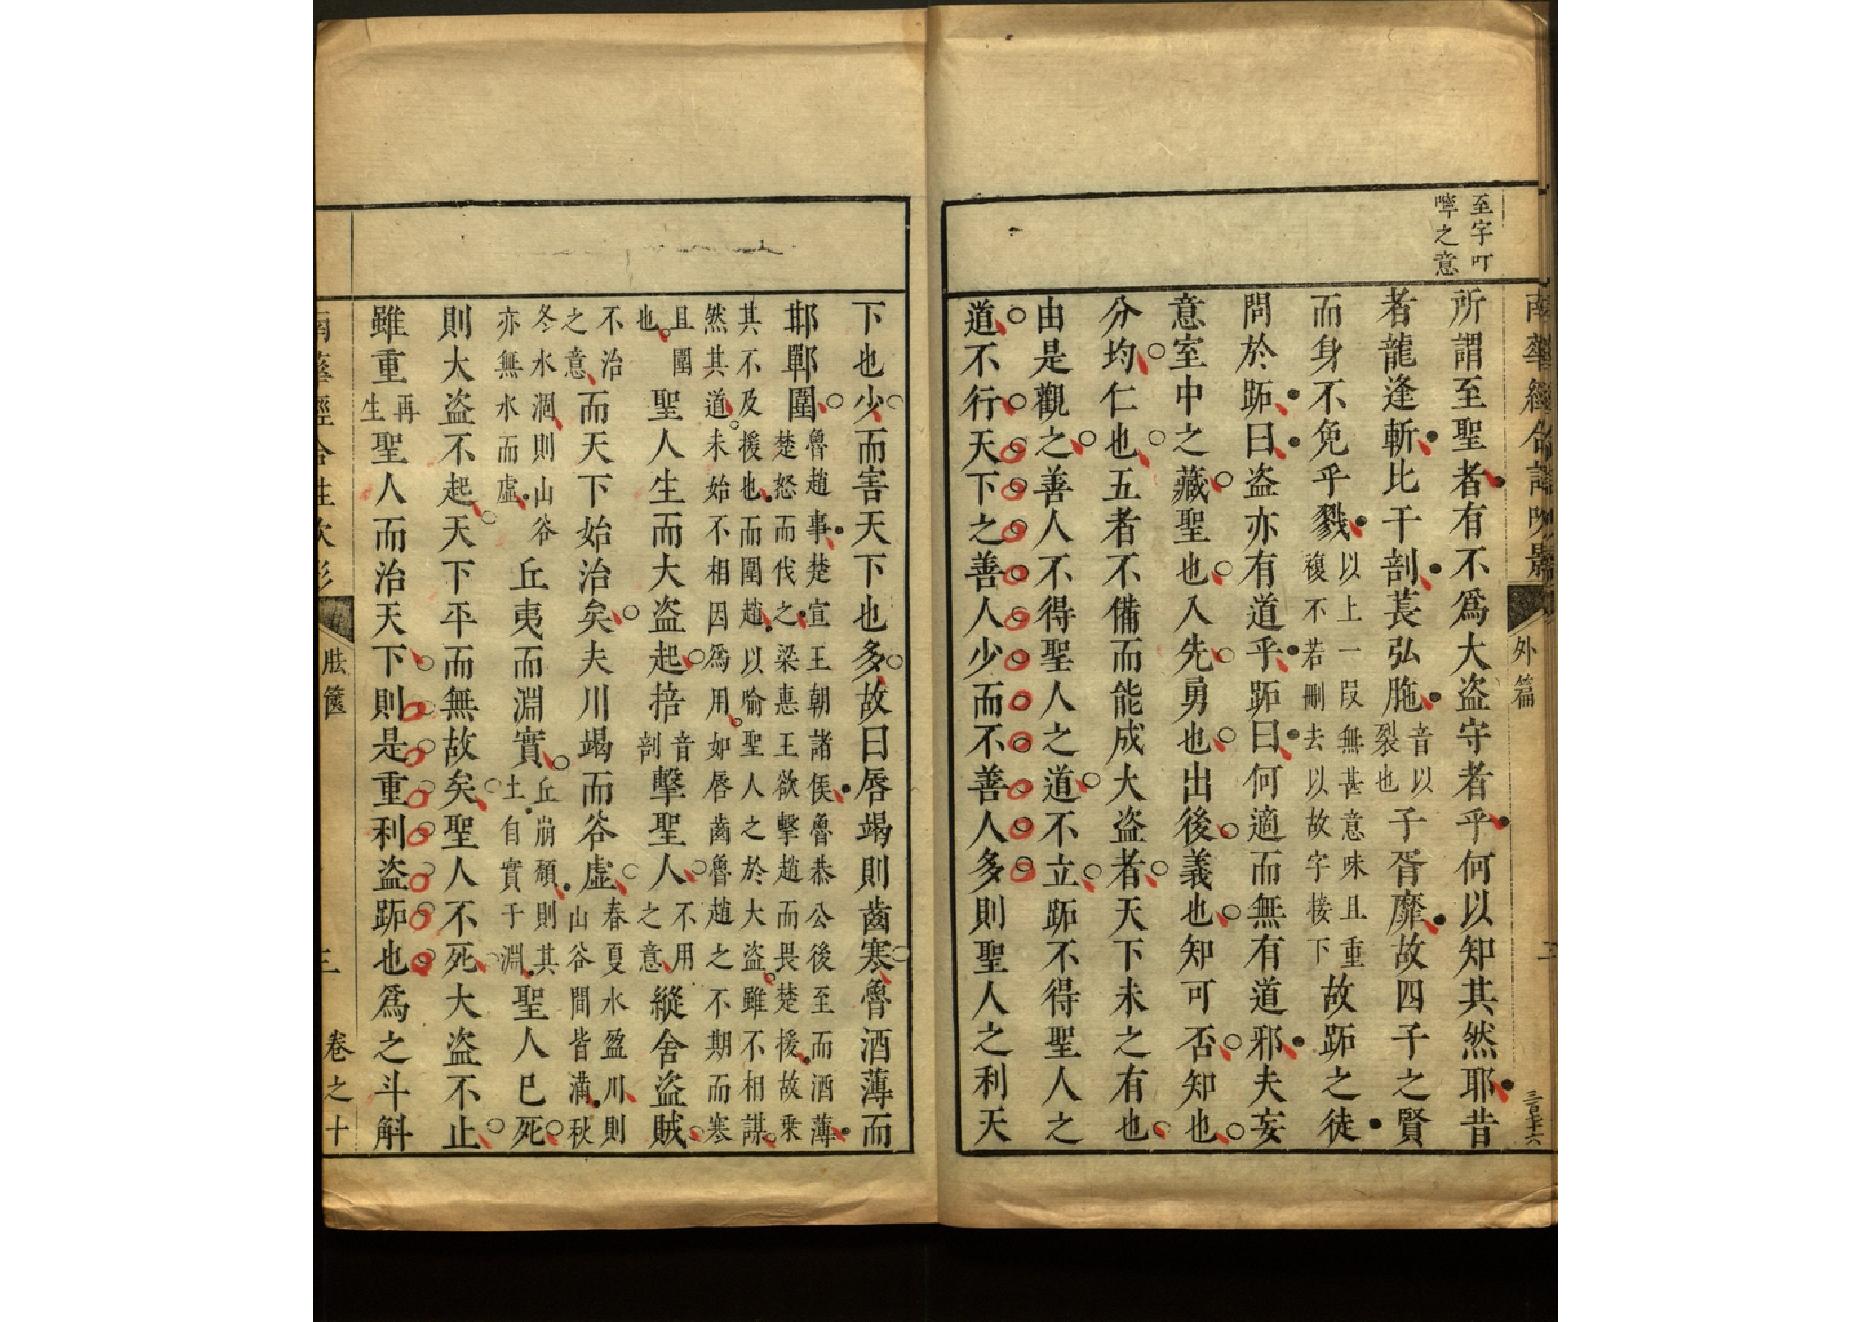 至字叮
嚀之意
外篇
所謂至聖者有不爲大盗守者乎何以知其然耶昔
者龍逢斬比干剖萇弘胣音以裂也子胥靡故四子之賢
而身不免乎戮以上一段無甚意味且重複不若刪去以故字接下故跖之徒
問於跖曰盗亦有道乎跖曰何適而無有道邪夫妄
意室中之藏聖也入先勇也出後義也知可否知也
分均仁也五者不備而能成大盗者天下未之有也
由是觀之善人不得聖人之道不立跖不得聖人之
道不行天下之善人少而不善人多則聖人之利天
下也少而害天下也多故曰唇竭則齒寒魯酒薄而
邯鄲圍魯趙事楚宣王朝諸侯魯恭公後至而酒薄楚怒而伐之梁惠王欲擊趙而畏楚援故乗
其不及援也而圍趙以喻聖人之於大盗雖不相謀然其道未始不相因爲用如唇齒魯趙之不期而寒
且圍也聖人生而大盗起掊音剖擊聖人不用之意縱舍盗賊
不治之意而天下始治矣夫川竭而谷虛春夏水盈川則山谷間皆滿秋
冬水涸則山谷亦無水而虛丘夷而淵實丘崩頽則其土自實于淵聖人已死
則大盗不起天下平而無故矣聖人不死大盗不止
雖重再生聖人而治天下則是重利盗跖也爲之斗斛
胠篋
三
卷之十